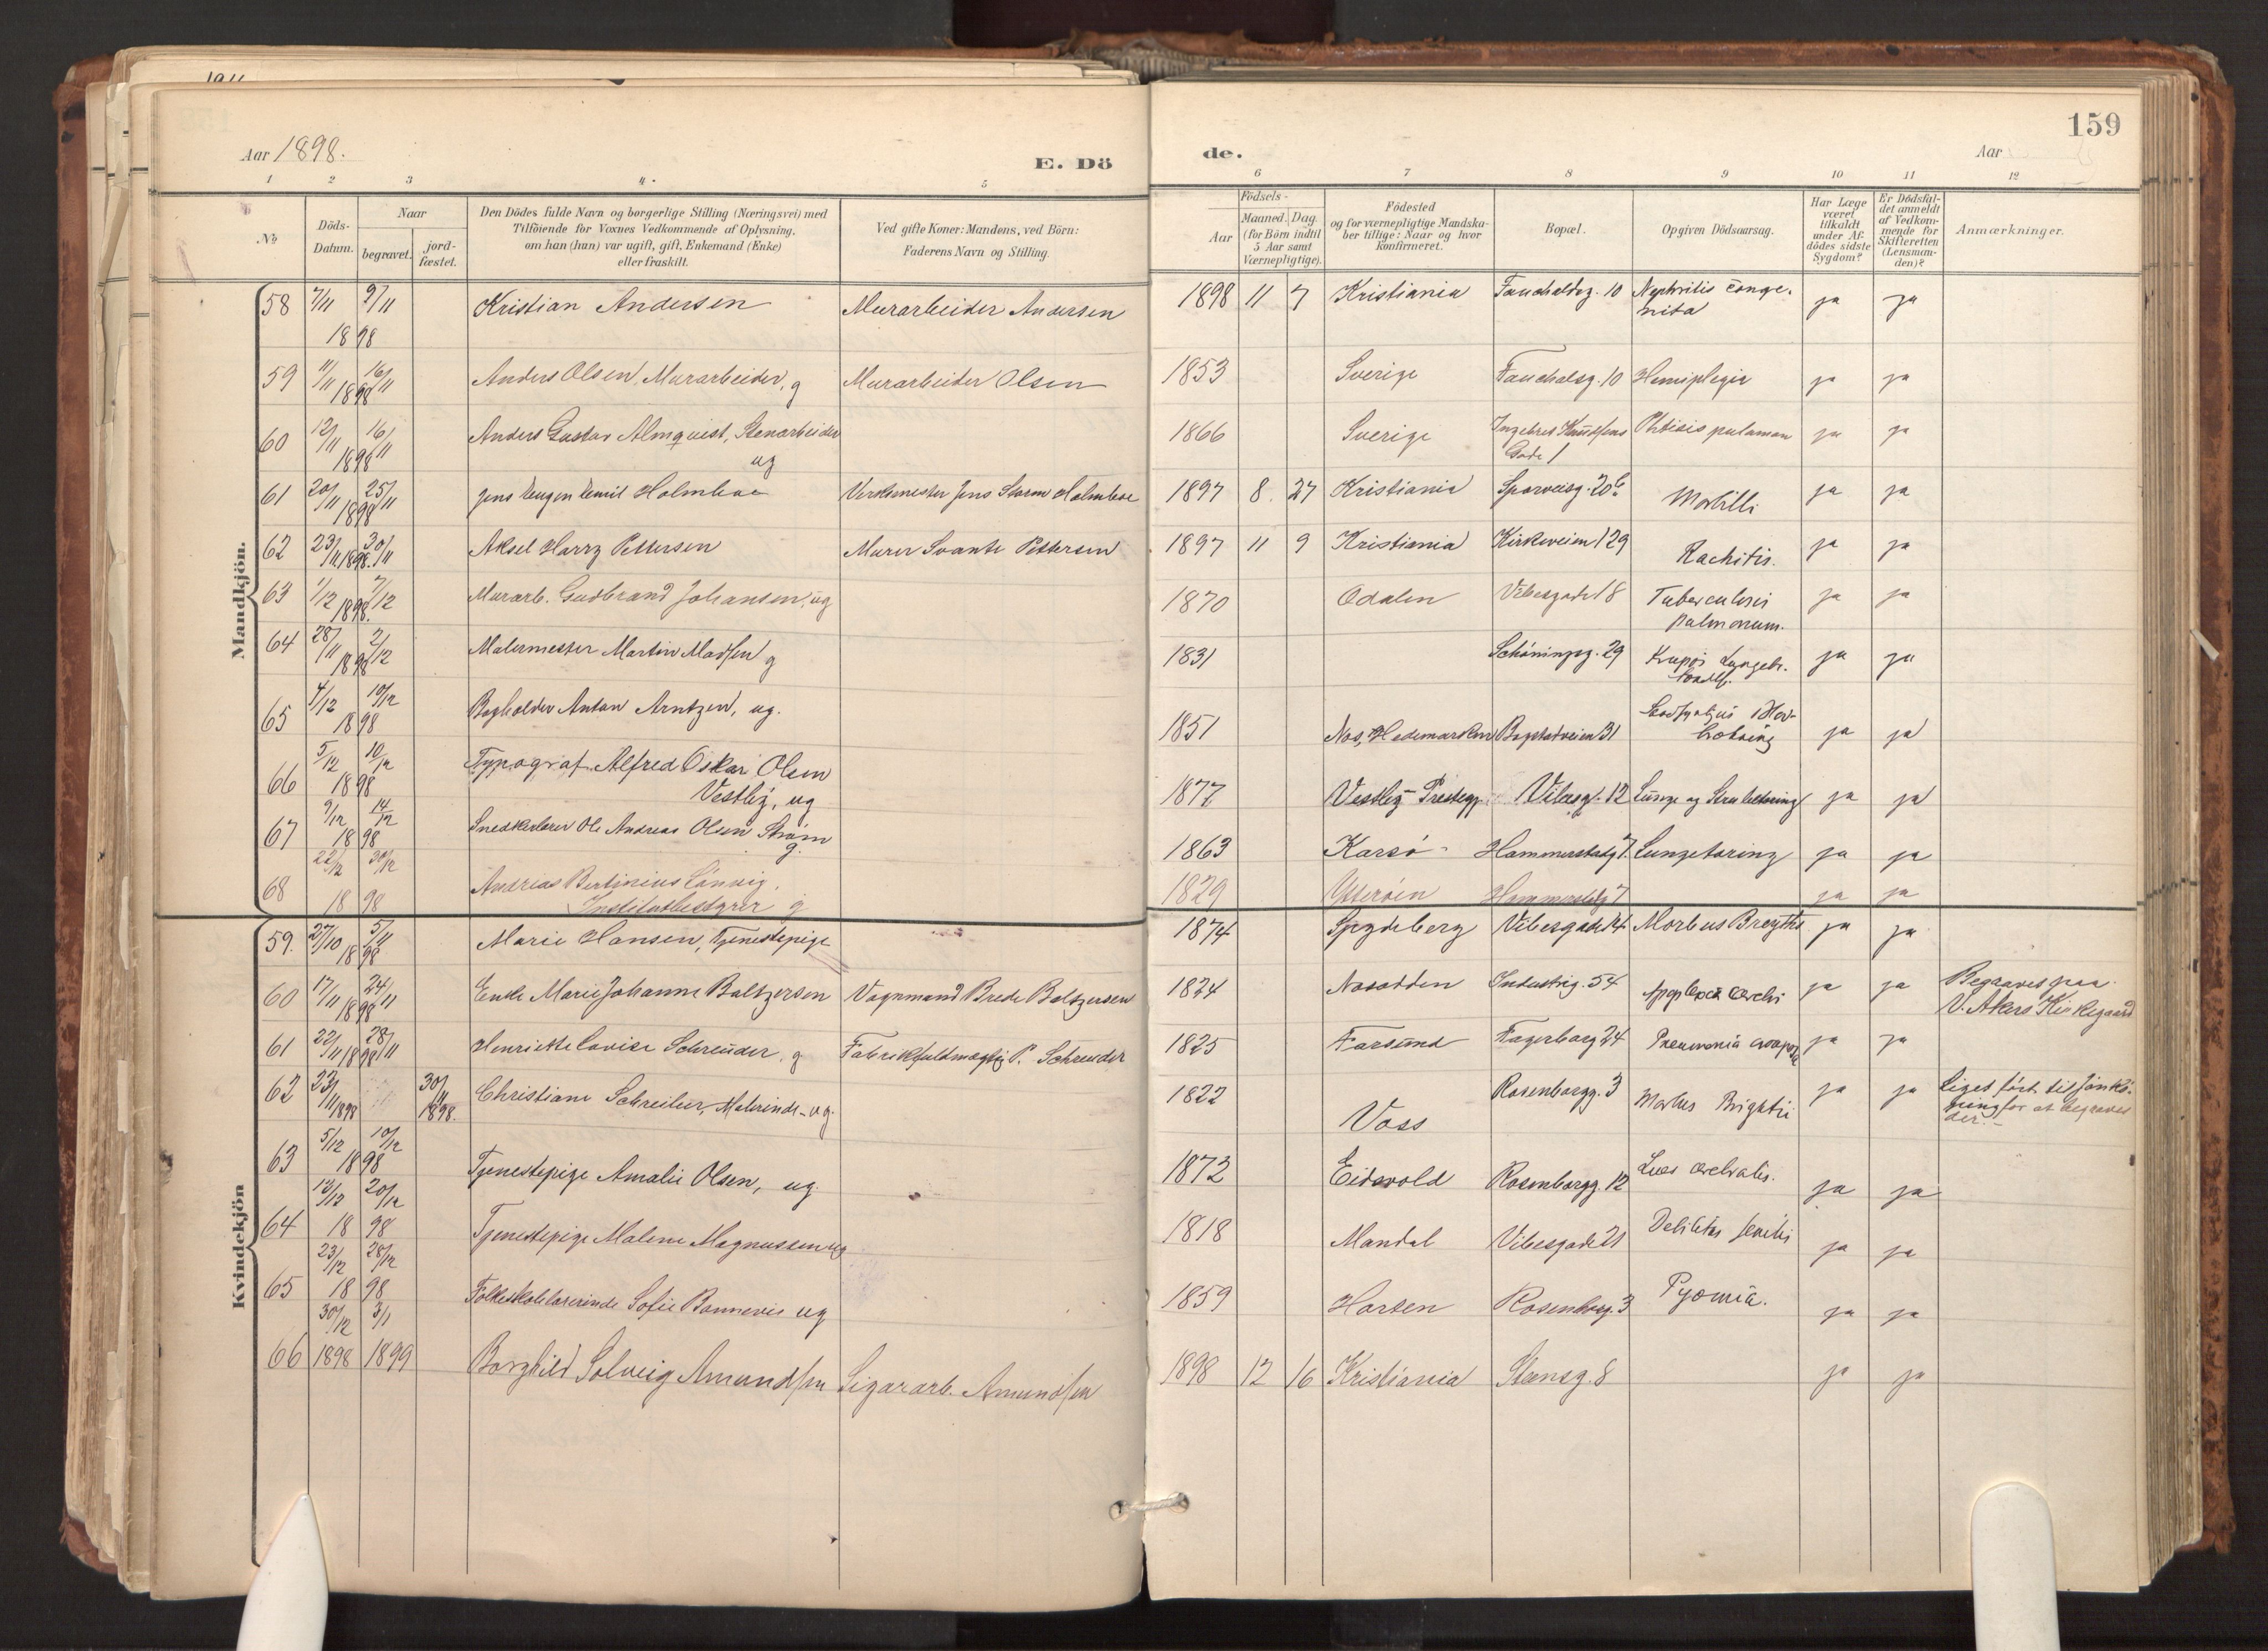 Aar 1898.
E. Dö
de.
Aar
159
1 2 3 4 5 6 7 8 9 10 11 12
No
Döds-Datum.
Naar begravet. jordfæstet.
Den Dödes fulde Navn og borgerlige Stilling (Næringsvei) med Tilföiende for Voxnes Vedkommende af Oplysning, om han (hun) var ugift, gift, Enkemand (Enke) eller fraskilt.
Ved gifte Koner: Mandens, ved Börn: Faderens Navn og Stilling.
Födsels-
Aar
Maaned. Dag. (for Börn indtil 5 Aar samt Værnepligtige).
Födested og for værnepligtige Mandskaber tillige: Naar og hvor konfirmeret.
Bopæl.
Opgiven Dödsaarsag.
Har Læge været tilkaldt under Afdödes sidste Sygdom?
Er Dödsfaldet anmeldt af Vedkommende for Skifteretten (Lensmanden)?
Anmærkninger.
Mandkjön.
58 7/11 9/11 1898 Kristian Andersen Murarbeider Andersen 1898 11 7 Kristiania Fauchaldsg. 10 Nephritis congenita ja ja
59 11/11 16/11 1898 Anders Olsen, Murarbeider, g Murarbeider Olsen 1853 Sverige Fauchalsg. 10 Hemiplegia ja ja
60 12/11 16/11 1898 Anders Gustav Almquist, Stenarbeider ug 1866 Sverige Ingebret Knudsens Gade 1 Phtisis pulmon ja ja
61 20/11 25/11 1898 Jens Eugen Emil Holmboe Verksmester Jens Storm Holmboe 1897 8 27 Kristiania Sporveisg. 20b Morbilli ja ja
62 23/11 30/11 1898. Aksel Harry Pettersen Murer Svante Pettersen 1897 11 9 Kristiania Kirkeveien 129 Rachitis. ja ja
63 1/12 7/12 1898. Murarb. Gudbrand Johansen, ug 1870 Odalen Vibesgade 18 Tuberculosis pulmonum. ja ja
64 28/11 2/12 1898 Malermester Martin Madsen g 1831 Schöningsg. 29 Krupös Lungebr. ja ja
65 4/12 10/12 1898 Bogholder Anton Arntzen, ug. 1851 Nes, Hedemarken Bogstadveien 31 ja ja
66 5/12 10/12 1898 Typograf Alfred Oskar Olsen Vestby, ug 1877 Vestby Prestegj. Vibesg. 12 Lunge og Strubetæring ja ja
67 9/12 14/12 1898 Snedkerlærer Ole Andreas Olsen Ström g. 1863 Karsö Hammerstadg 7. Lungetæring ja ja
68 22/12 30/12 1898 Andreas Bertinius Lönvig, Institutbestyrer g 1829 Ytteröen Hammerstadg 7 ja ja
Kvindekjön
59. 27/10 5/11 1898 Marie Hansen, Tjenestepige 1874 Spydeberg Vibesgade 14 Morbus Brigthi ja ja
60 17/11 24/11 1898 Enke Marie Johanne Baltzersen Vognmand Brede Baltzersen 1824 Nesodden Industrig. 54 Apoplexia cerebri ja ja Begraves paa V. Akers Kirkegaard
61 22/11 28/11 1898 Henriette Lovise Schreuder, g Fabrikfuldmægtig P. Schreuder 1825 Farsund Fagerborg 24 Pneumonia crouposa ja ja
62 23/11 1898 30/11 1898. Christiane Schreiber, Malerinde ug. 1822 Voss Rosenborgg. 3 Morbus Brightii ja ja Liget fört til Jönköping for at begraves der.
63 5/12 10/12 1898 Tjenestepige Amalie Olsen, ug. 1872 Eidsvold Rosenborgg. 12 Lues cerebralis. ja ja
64 13/12 20/12 1898 Tjenestepige Malene Magnussen ug 1818 Mandal Vibesgade 21 Debilitas senilis ja ja
65 23/12 28/12 1898 Folkeskolelærerinde Sofie Bonnevie ug 1859 Horten Rosenborg. 3 Pyæmia. ja ja
66 30/12 3/1 1898 1899 Borghild Solveig Amundsen Sigararb. Amundsen 1898 12 16 Kristiania Stensg. 8 ja ja